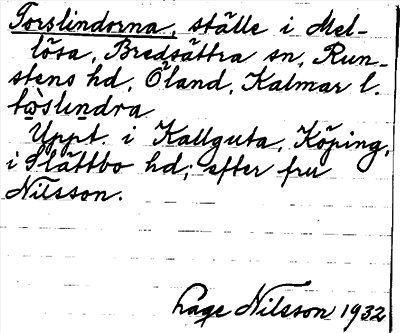 Torslindorna, ställe i Mel-
lösa, Bredsättra sn, Run-
stens hd, Öland, Kalmar l.
tòslindra
Uppt. i Kallguta, Köping,
i Slättbo hd; efter fru
Nilsson.
Lage Nilsson 1932